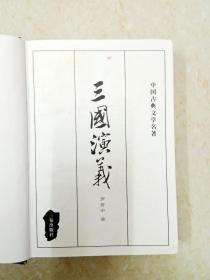 中国古典文学名著
三國演義
罗贯中 著